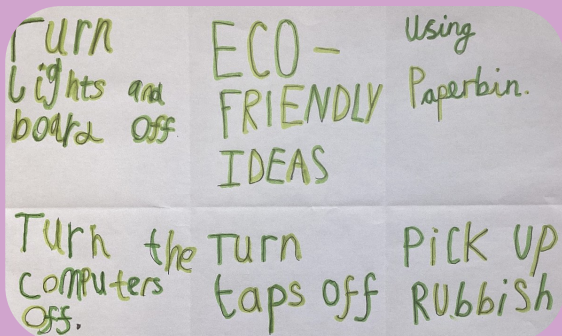 Turn
Lights and
board off
ECO-
FRIENDLY
IDEAS
Using
Paperbin.
Turn the
computers
Off.
Turn
taps off
PiCK UP
RUbbish